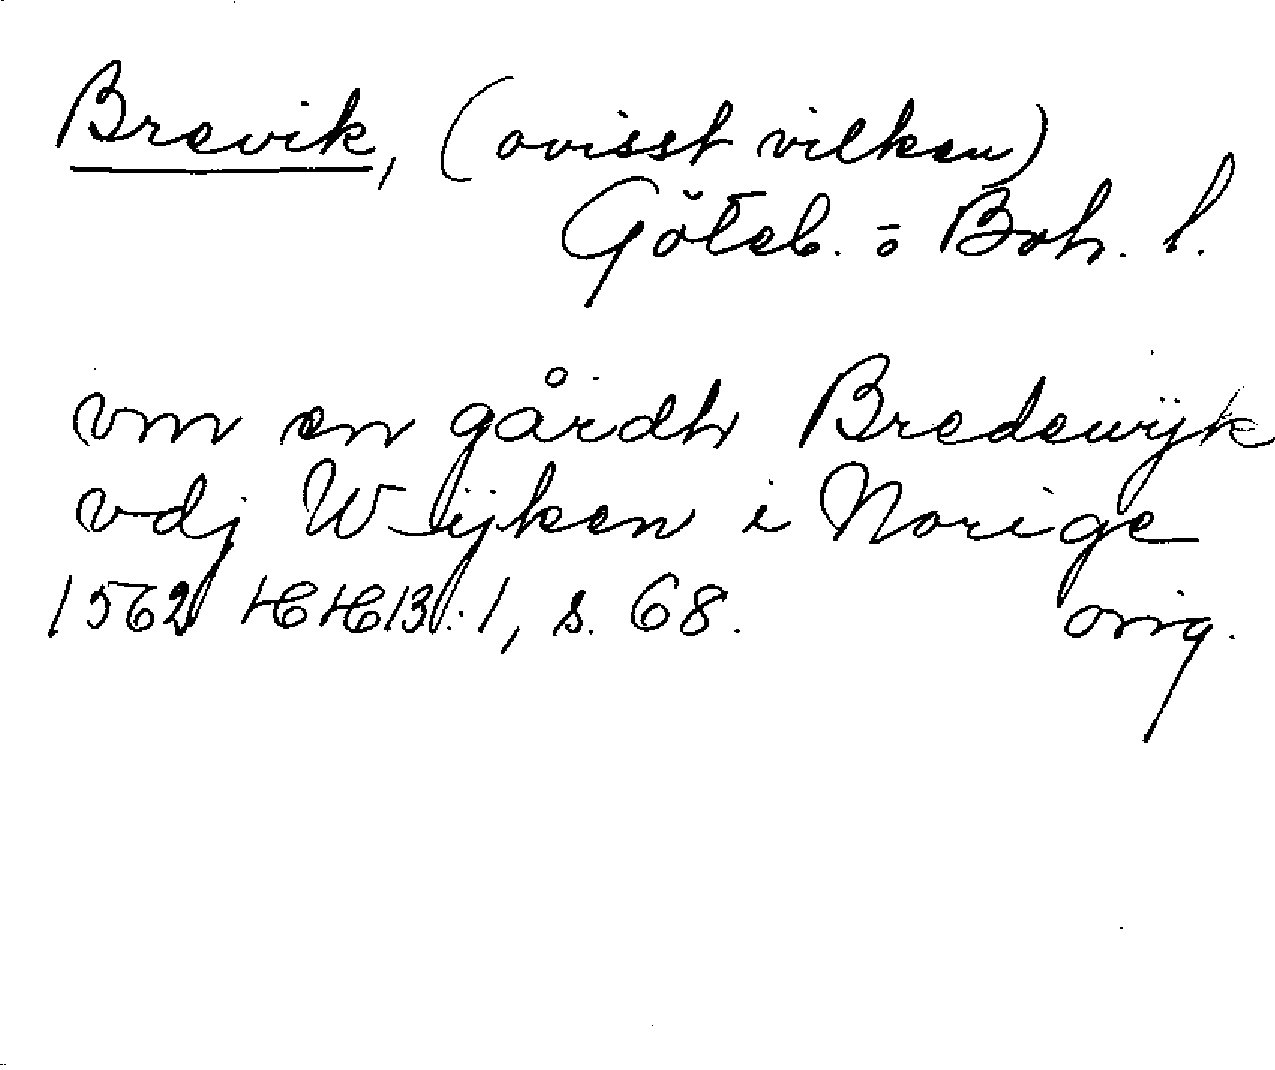 Brevik, (ovisst vilken)
Göteb. o Boh. l.
vm en gårdh Bredewijk
vdj Wijken i Norige
1562 HHB:1, s. 68. orig.